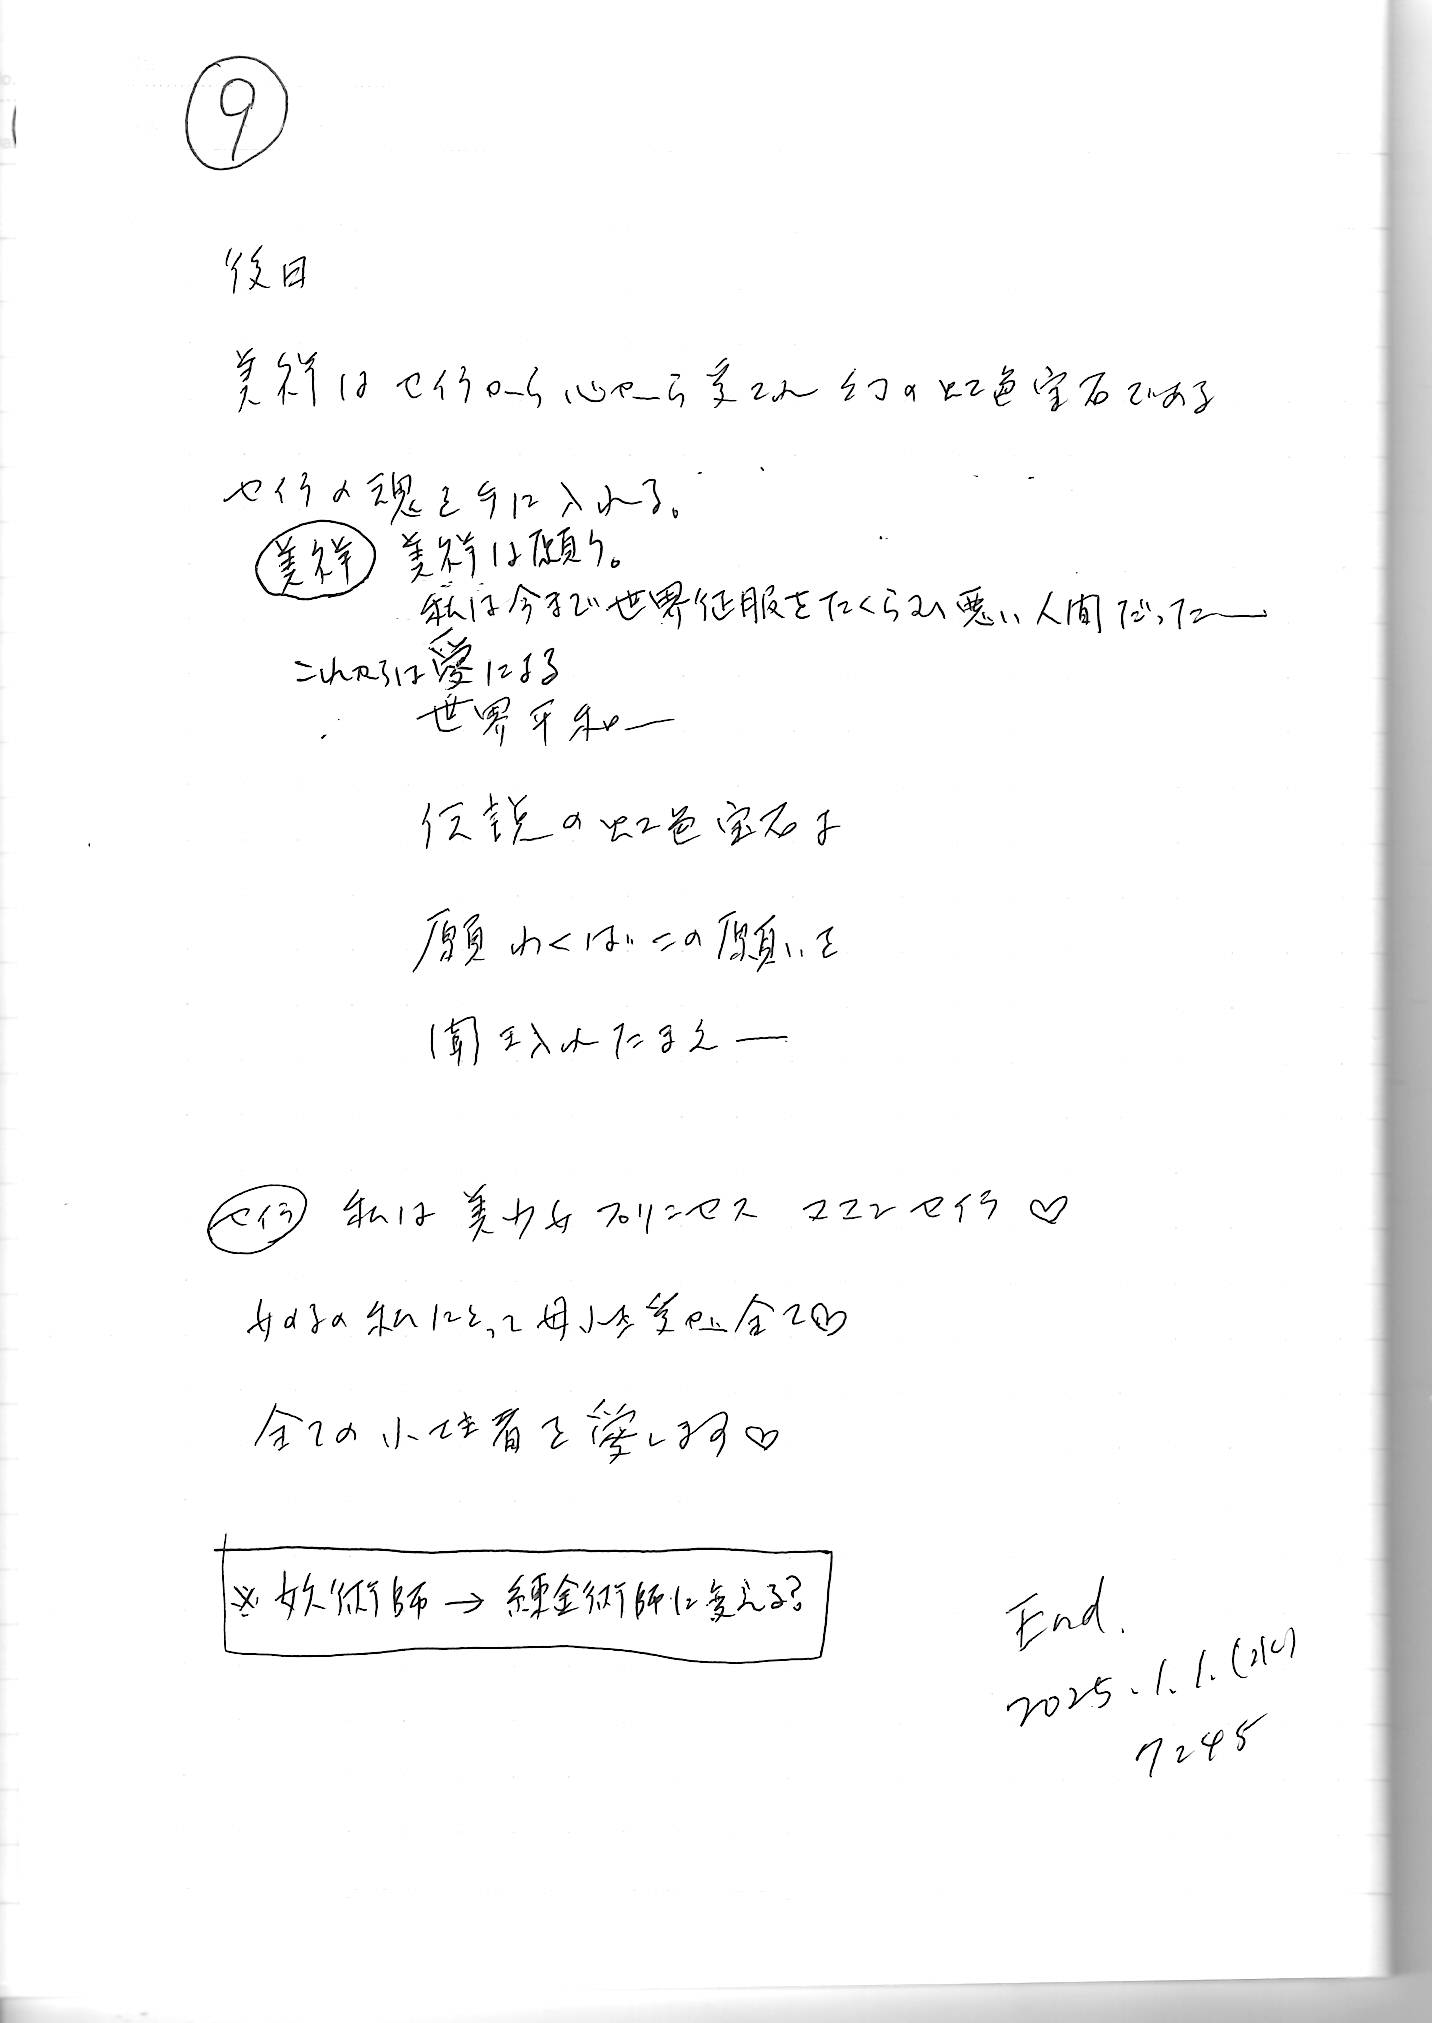 ⑨
後日
美祥はセイラから心から愛され幻の虹色宝石である
セイラの魂を手に入れる。
美祥 美祥は願う。
私は今まで世界征服をたくらむ悪い人間だった―
これからは愛による
世界平和―
伝説の虹色宝石よ
願わくばこの願いを
聞き入れたまえ―
セイラ 私は美少女プリンセス ママン セイラ♡
女の子の私にとって母性愛が全て♡
全ての小性者を愛します♡
※妖術師→錬金術師に変える?
End.
2025.1.1.(水)
7245